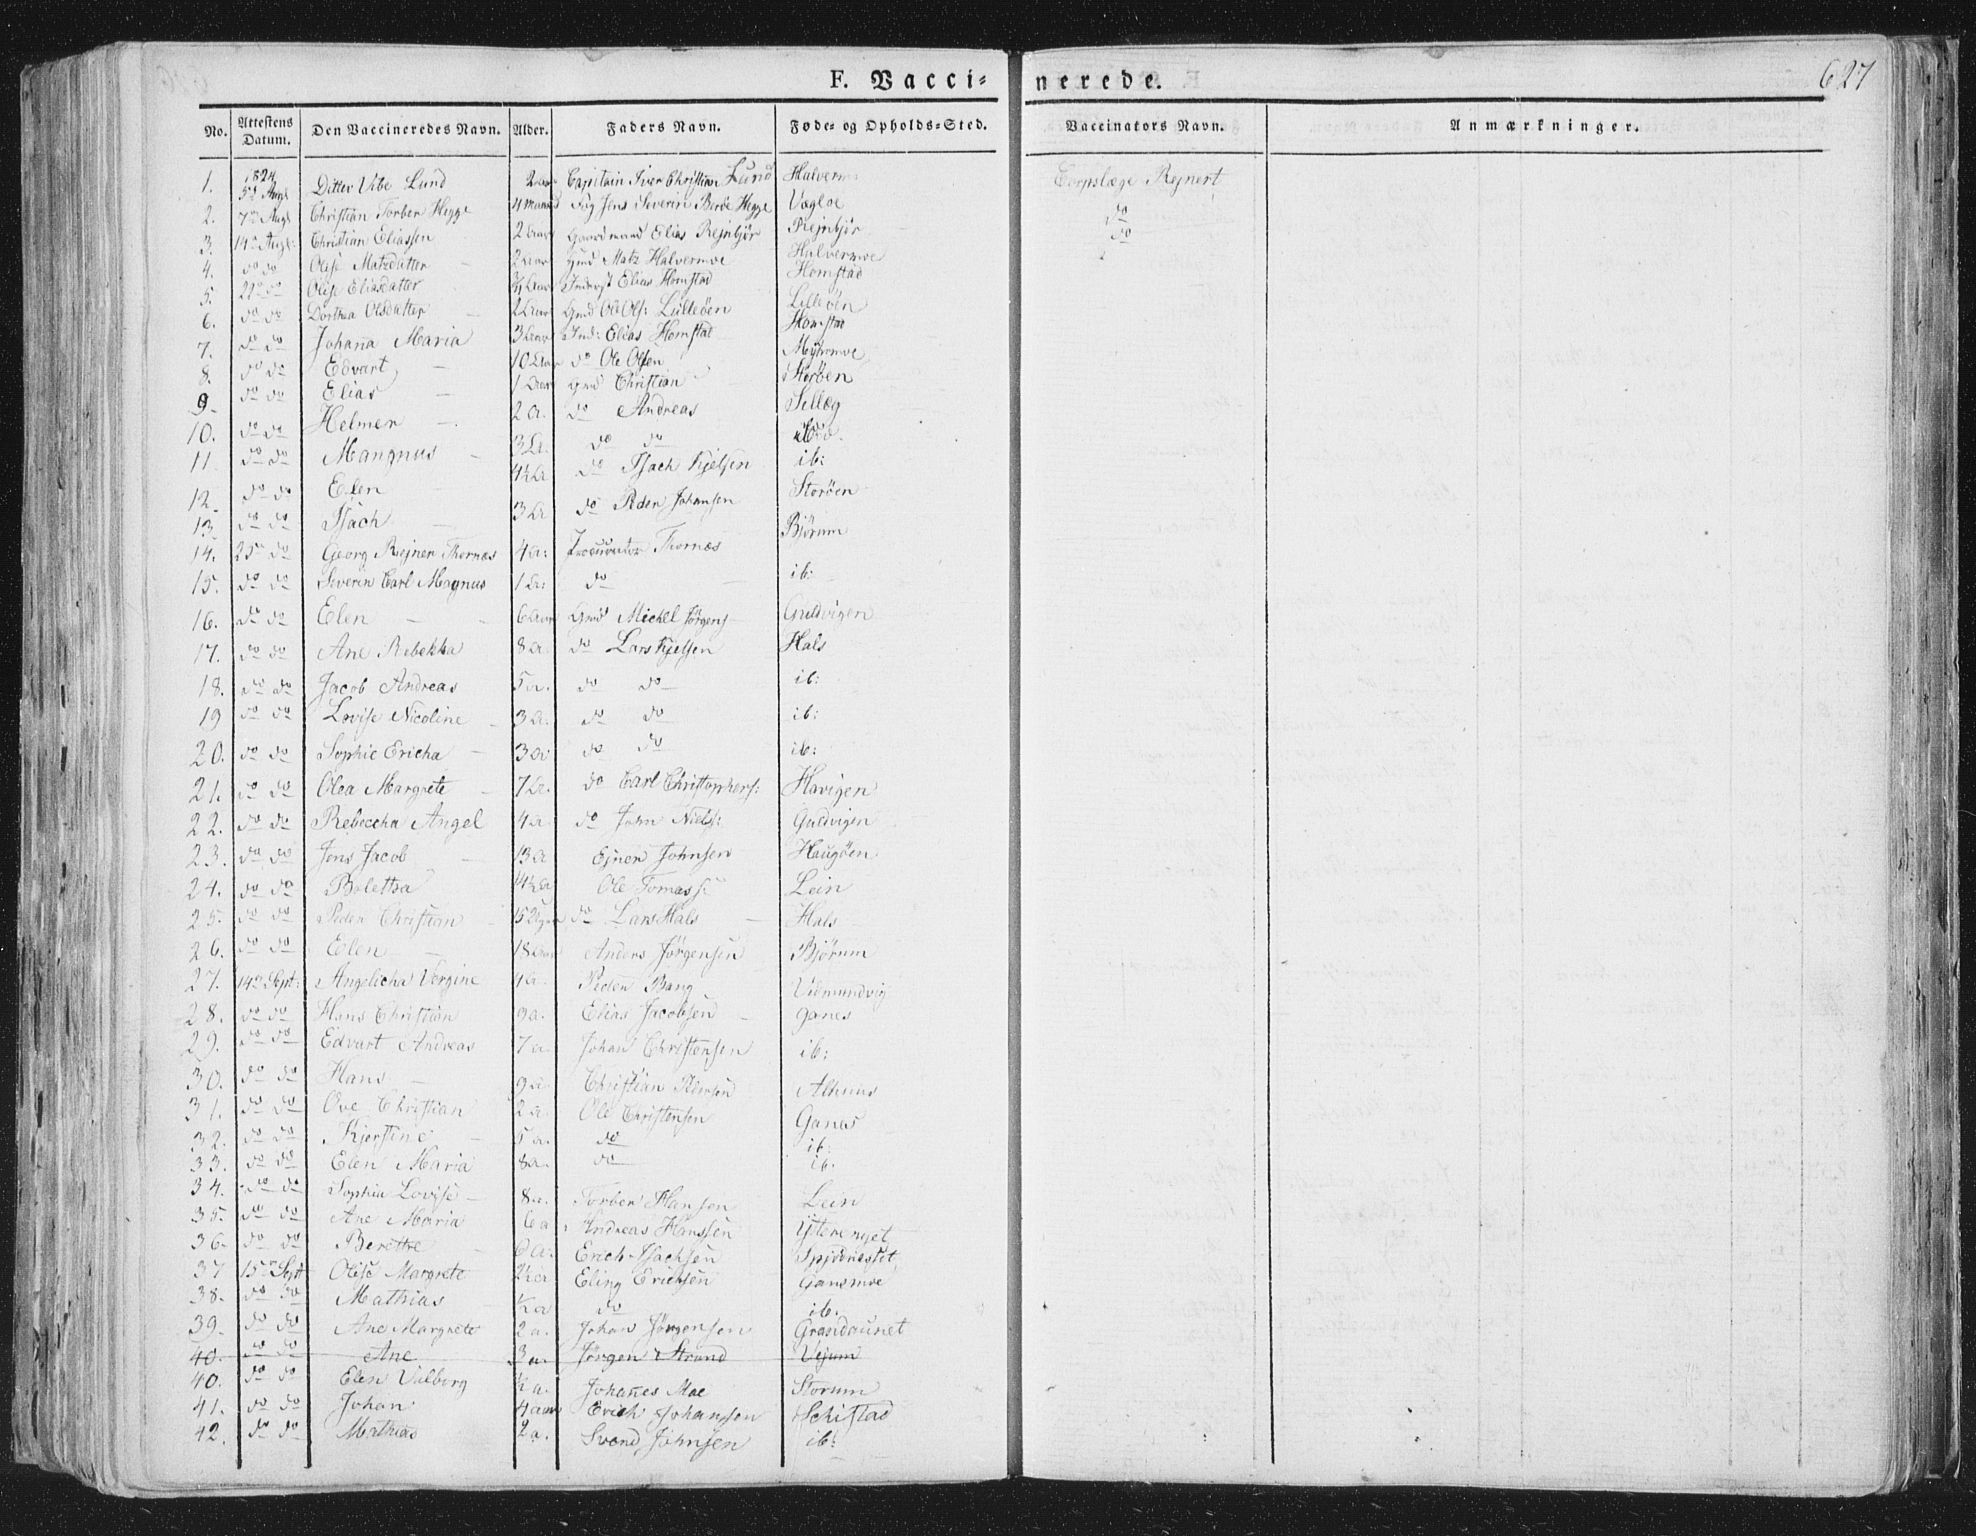 F. Vacci-nerede.
627
No. Attestens Datum. Den Vaccineredes Navn. Alder. Faders Navn. Føde- og Opholds-Sted. Vaccinators Navn. Anmærkninger.
1824
1. 5t Aug Ditter Vibe Lund 2 Capitain Iver Christian Lund Halverm Corpslæge Rejnert
2. 7de Aug Christian Torber Hegge 4 Jens Severin Hegge Vægloe do
3. 14de Aug: Christian Eliassen 2 Gaardmand Elias Rejnbjør Rejnbjør do
4. do do Olise Matzdatter 2 Gmd Matz Halvermoe Halvermoe
5. 22 do Olise Eliasdatter Inderst Elias Homstad Homstad
6. do do Dorthea Olsdatter 2 Gmd Ole Ols: Lilleöen Lilleöen
7. do do Johana Maria 3 Ind: Elias Homstad Homstad
8. do do Edvart 10 do Ole Olsen
9. do do Elias 1 Gmd Christian
10. do do Helmer 2 a. do Andreas
11. do do Mangnus 3 do do ib:
12. do do Elen 4 do Isach Kjelsen Storöen
13. do do Isach 3 do Peder Johansen
14. 25 do Georg Rejner Thornæs 4 a: Procurator Thornæs Bjørum
15. do do Severin Carl Magnus 1 a: do ib:
16. do do Elen 6 Gmd Michel Jørgens Guldvigen
17. do do Ane Rebekka 8 a. do Lars Kjelsen Hals
18. do do Jacob Andreas 5 a. do do ib:
19 do do Lovise Nicoline 3 a: do do ib:
20. do do Sophie Ericha 3 a do do ib:
21. do do Olea Margrete 7 a. do Carl Christophers: Havigen
22. do do Rebeccha Angel 4 a. do John Niels: Guldvigen
23. do do Jens Jacob 13 a Ejner Johnsen Haugöen
24. do do Boletha Ole Tomass Lein
25. do do Peder Christian 15 do Lars Hals Hals
26. do do Elen 18 Anders Jørgensen Bjørum
27. 14de Sept: Angelicha Vergine 4 a. Peder Bang Vidmundvig
28. do do Hans Christian 9 a. Elias Jacobsen Ganes
29. do do Edvart Andreas 7 a. Johan Christensen ib:
30. do do Hans 9 a. Christian Pedersen
31. do do Ove Christian 2 a. Ole Christensen Ganes
32. do do Kjerstine 5 a. do ib:
33. do do Elen Maria 8 a. do ib.
34. do do Sophia Lovise 8 a. Torber Hansen Lein
35. do do Ane Maria 6 a Andreas Hanssen
36. do do Berethe 6 a. Erich Isachsen
37 15de Sept Olise Margrete Eling Ericksen Gansmoe
38. do do Mathias ½ a do ib.
39. do do Ane Margrete 2 a. Johan Jørgensen Grandaunet
40. do do Ane 3 a. Jørgen Strand Vejum
40. do do Elen Valborg ½ a. Johanes Moe Storum
41. do do Johan 4 Erich Johansen Schistad
42. do do Mathias 2 a. Svend Johnsen ib: